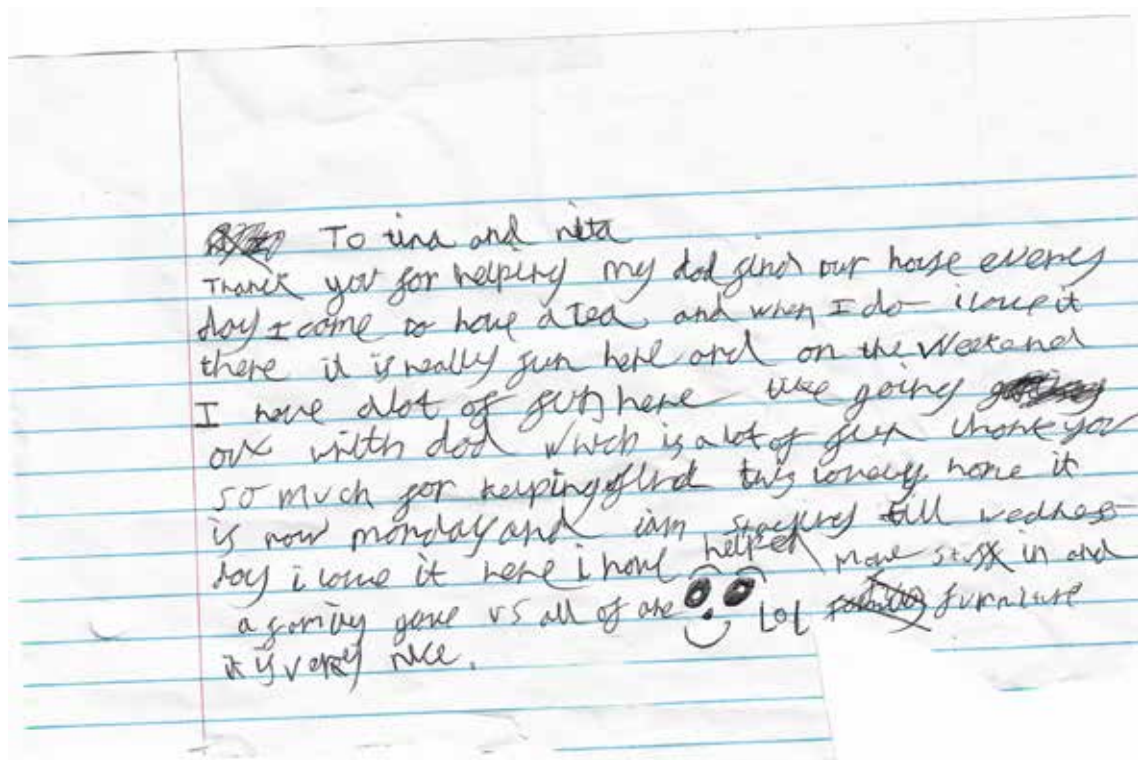 To tina and nita
Thanck you for helping my dad find our house every
day I come to have a tea and when I do i love it
there it is really fun here and on the Weekend
I have alot of fun here like going
out with dad which is a lot of fun thank you
so much for helping find this lovely home it
is now monday and iam staying till wednes
day i love it here i have helped move stuff in and
a family gave us all of are LOL furniture
it is very nice.